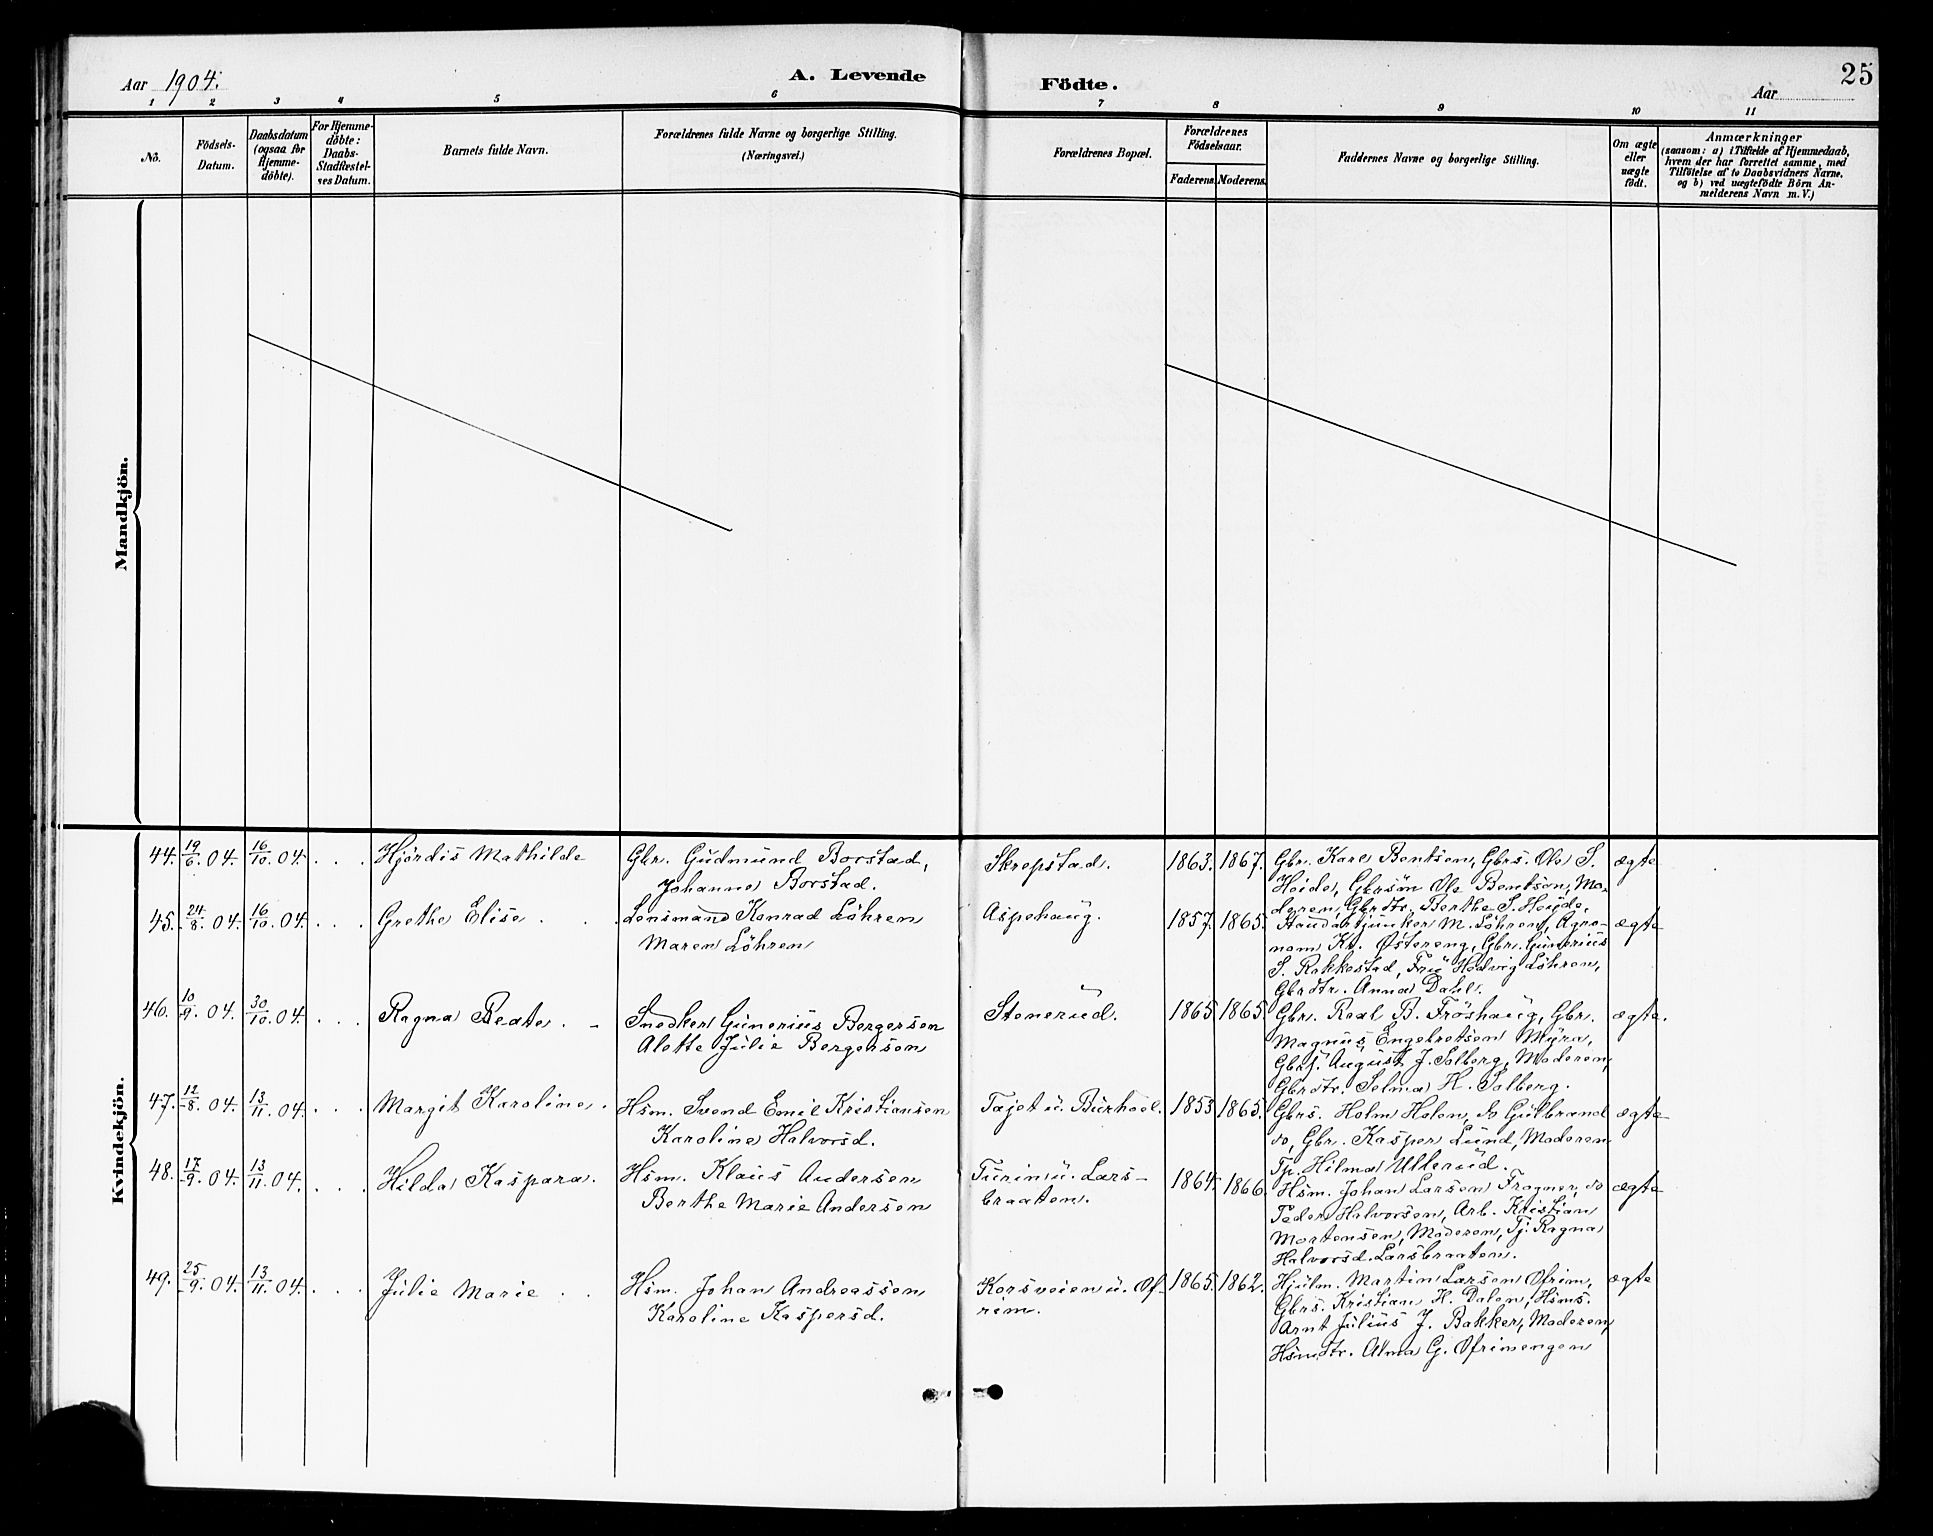 Aar 1904.
A. Levende
Födte.
Aar
25
1 2 3 4 5 6 7 8 9 10 11
No.
Födsels-
Datum.
Daabsdatum
(ogsaa for
Hjemme-
döbte).
For Hjemme-
döbte:
Daabs-
Stadfæstel-
ses Datum.
Barnets fulde Navn.
Forældrenes fulde Navne og borgerlige Stilling.
(Næringsvei.)
Forældrenes Bopæl.
Forældrenes
Födselsaar.
Faderens. Moderens.
Faddernes Navne og borgerlige Stilling.
Om ægte
eller
uægte
födt.
Anmærkninger
(saasom: a) i Tilfælde af Hjemmedaab,
hvem der har forrettet samme, med
Tilföielse af to Daabsvidners Navne.
og b) ved uægtefödte Börn An-
melderens Navn m. V.)
Mandkjön.
Kvindekjön.
44. 19/6. 04. 16/10. 04. . . . Hjørdis Mathilde
Gbr. Gudmund Borstad,
Johanne Borstad.
Skrepstad. 1863. 1867.
Gbr. Karl Bentsen, Gbrs. Ole S.
Heide, Gbrsøn Ole Bentsen, Mo-
deren, Gbrdtr. Berthe S. Heide.
ægte
45. 24/8. 04. 16/10. 04. . . . Grethe Elise . .
Lensmand Konrad Löhren
Maren Löhren
Aspehaug. 1857. 1865.
Standartjunker M. Löhren, Agro-
nom Kr. Østereng, Gbr. Gunerius
S. Rakkestad, Fru Hedvig Löhren,
Gbrdtr. Anna Dahl.
ægte
46. 10/9. 04. 30/10. 04. . . . Ragna Beate . -
Snedker Gunerius Bergersen
Alette Julie Bergersen
Stenerud. 1865. 1865.
Gbr. Real B. Fröshaug, Gbr.
Magnus Engebretsen Myra,
Gbrs. August J. Solberg, Moderen,
Gbrdtr. Selma H. Solberg.
ægte.
47. 12/8. 04. 13/11. 04. . . . Margit Karoline .
Hsm. Svend Emil Kristiansen
Karoline Halvorsd.
Tajet u. Burhoel. 1853 1865.
Gbrs. Holm Holen, do Gulbrand
do, Gbr. Kasper Lund, Moderen
Tp. Hilma Ullerud.
ægte
48. 17/9. 04. 13/11. 04. . . . Hilda Kaspara.
Hsm. Klaus Andersen
Berthe Marie Andersen
u. Lars-
braaten. 1864. 1866.
Hsm. Johan Larsen Fragner, do
Peder Halvorsen, Arb. Kristian
Mortensen, Moderen, Tj. Ragna
Halvorsd. Larsbraaten.
ægte
49. 25/9. 04. 13/11. 04. . . . Julie Marie . .
Hsm. Johan Andreassen
Karoline Kaspersd.
Korsveien u. Øf-
rim. 1865. 1862.
Hjulm. Martin Larsen Øfrim,
Gbrs. Kristian H. Dalen, Hsms.
Arnt Julius J. Bakker, Moderen,
Hsmdtr. Alma G. Øfrimengen
ægte